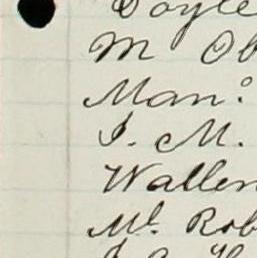 Doyle
M Ob
Man:
J. M.
Wallen
Mt. Rob